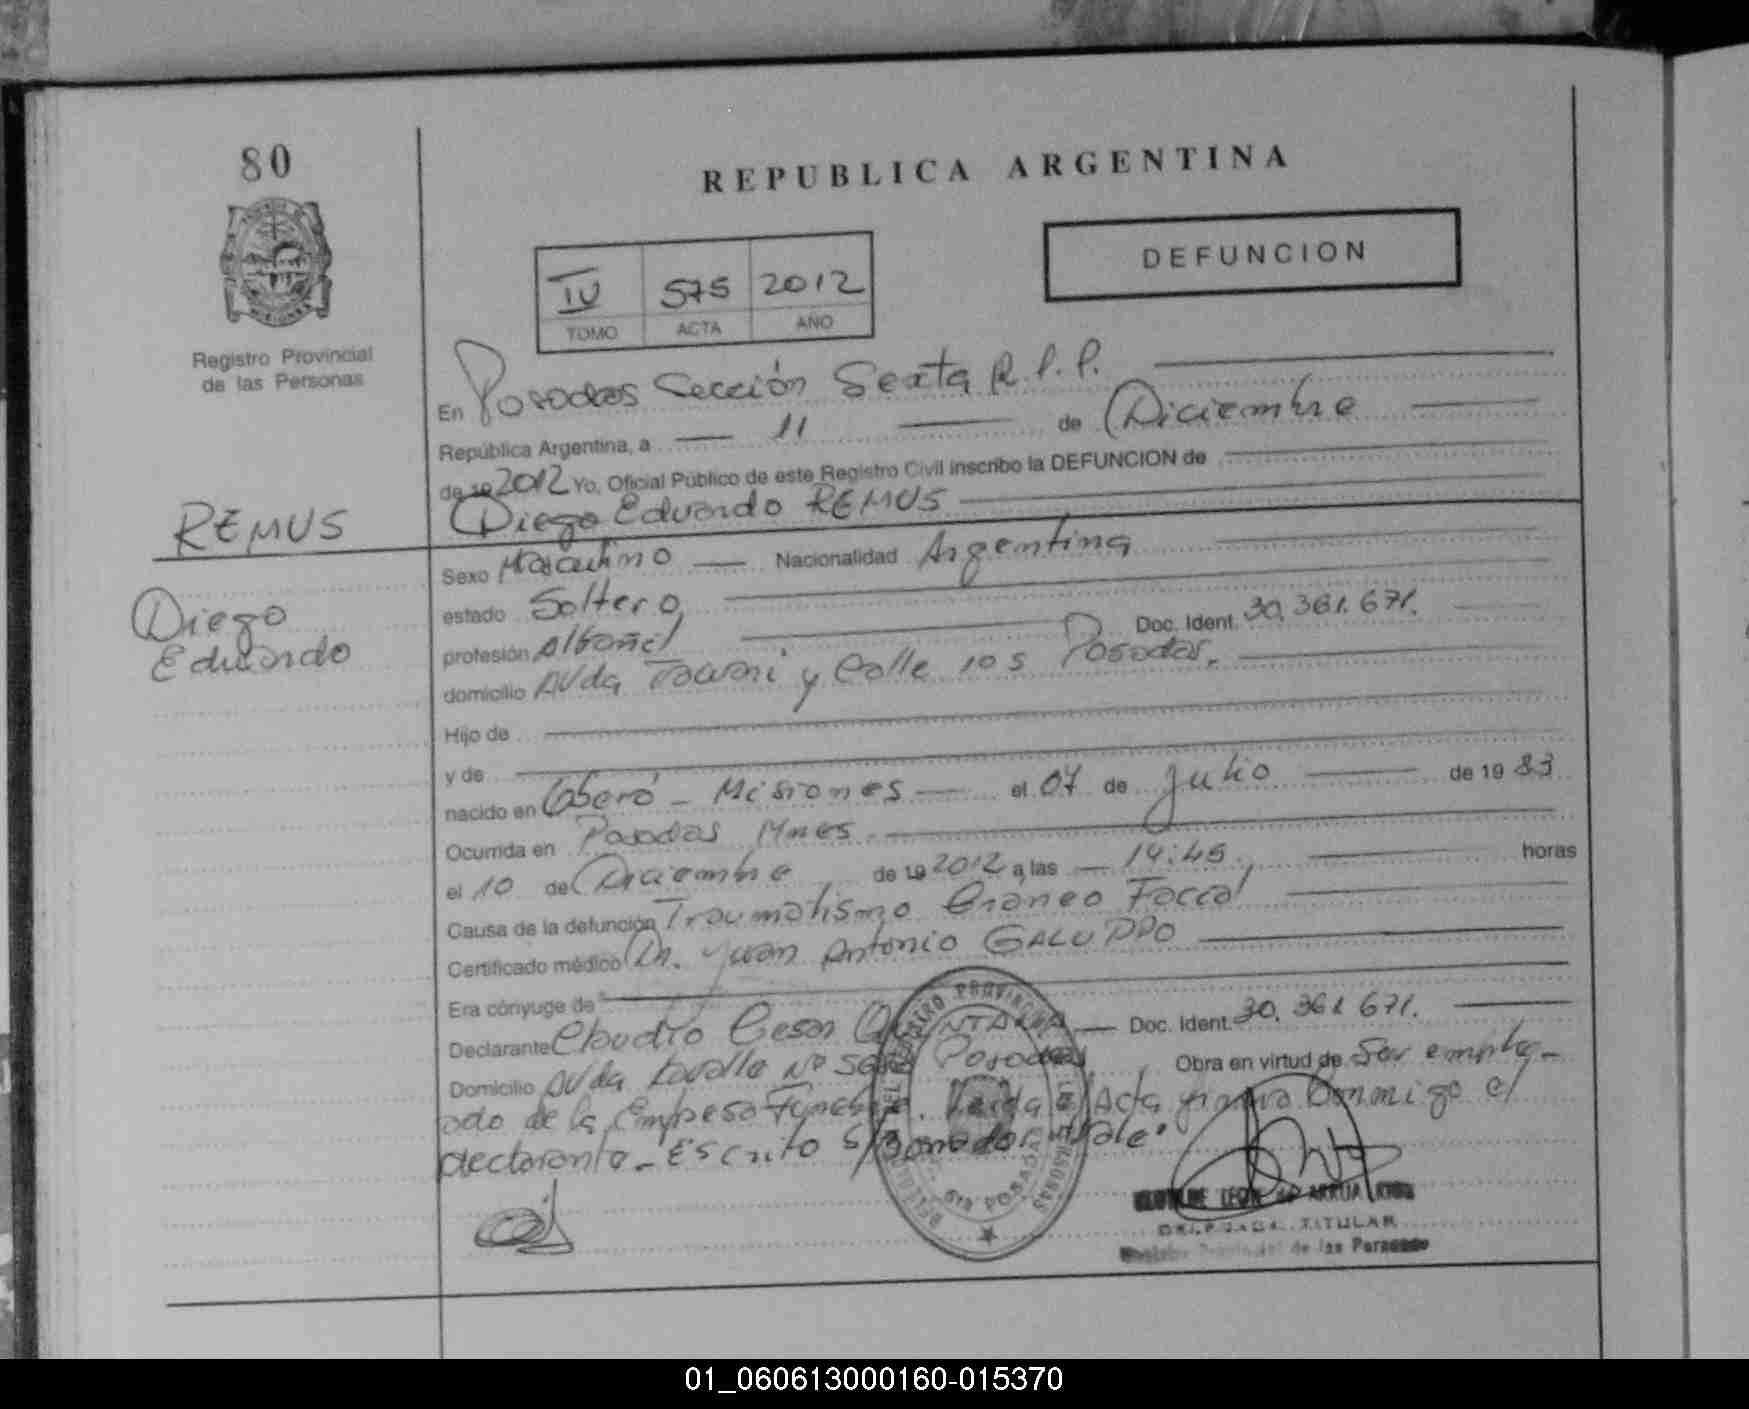 80
REPUBLICA ARGENTINA
DEFUNCION
IV 575 2012
TOMO ACTA AÑO
Registro Provincial
de las Personas
En Posadas Sección Sexta R.P.P.
República Argentina, a 11 de Diciembre
de 19 2012 Yo, Oficial Público de este Registro Civil inscribo la DEFUNCION de
REMUS
Diego Eduardo REMUS
Diego
Eduardo
Sexo Masculino Nacionalidad Argentina
estado Soltero
profesión Albañil Doc. Ident. 30.361.671.
domicilio AVda Tacuari y Calle 105 Posadas.
Hijo de
y de
nacido en Oberá - Misiones el 07 de Julio de 19 83
Ocurrida en Posadas Mnes
el 10 de Diciembre de 19 2012 a las 14:45 horas
Causa de la defunción Traumatismo Cráneo Faccal
Certificado médico Dr. Juan Antonio GALUPPO
Era cónyuge de
Declarante Claudio Cesar Doc. Ident. 30.361 671.
Domicilio AVda Lavalle Nº Posadas Obra en virtud de Ser emplea-
ado de la Empresa Funebre. Leida el Acta firma Conmigo el
declarante - Escrito s/Borrador: Vale.
DELEGADA TITULAR
Registro Provincial de las Personas
01_060613000160-015370